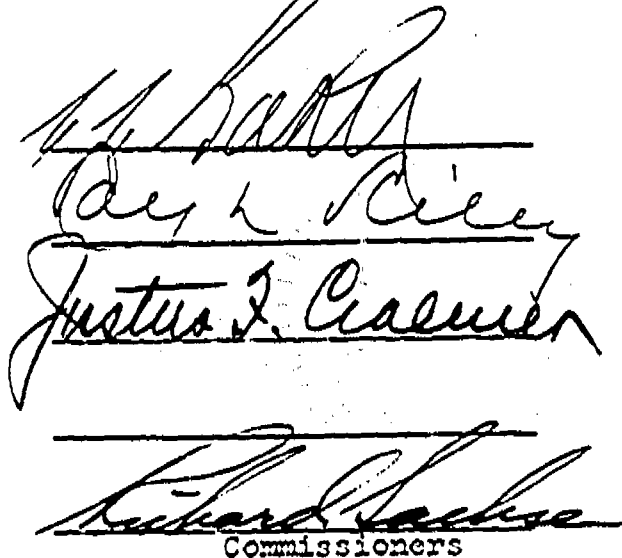 Ray L Riley
Justus F. Craemer
Richard Sachse
Commissioners